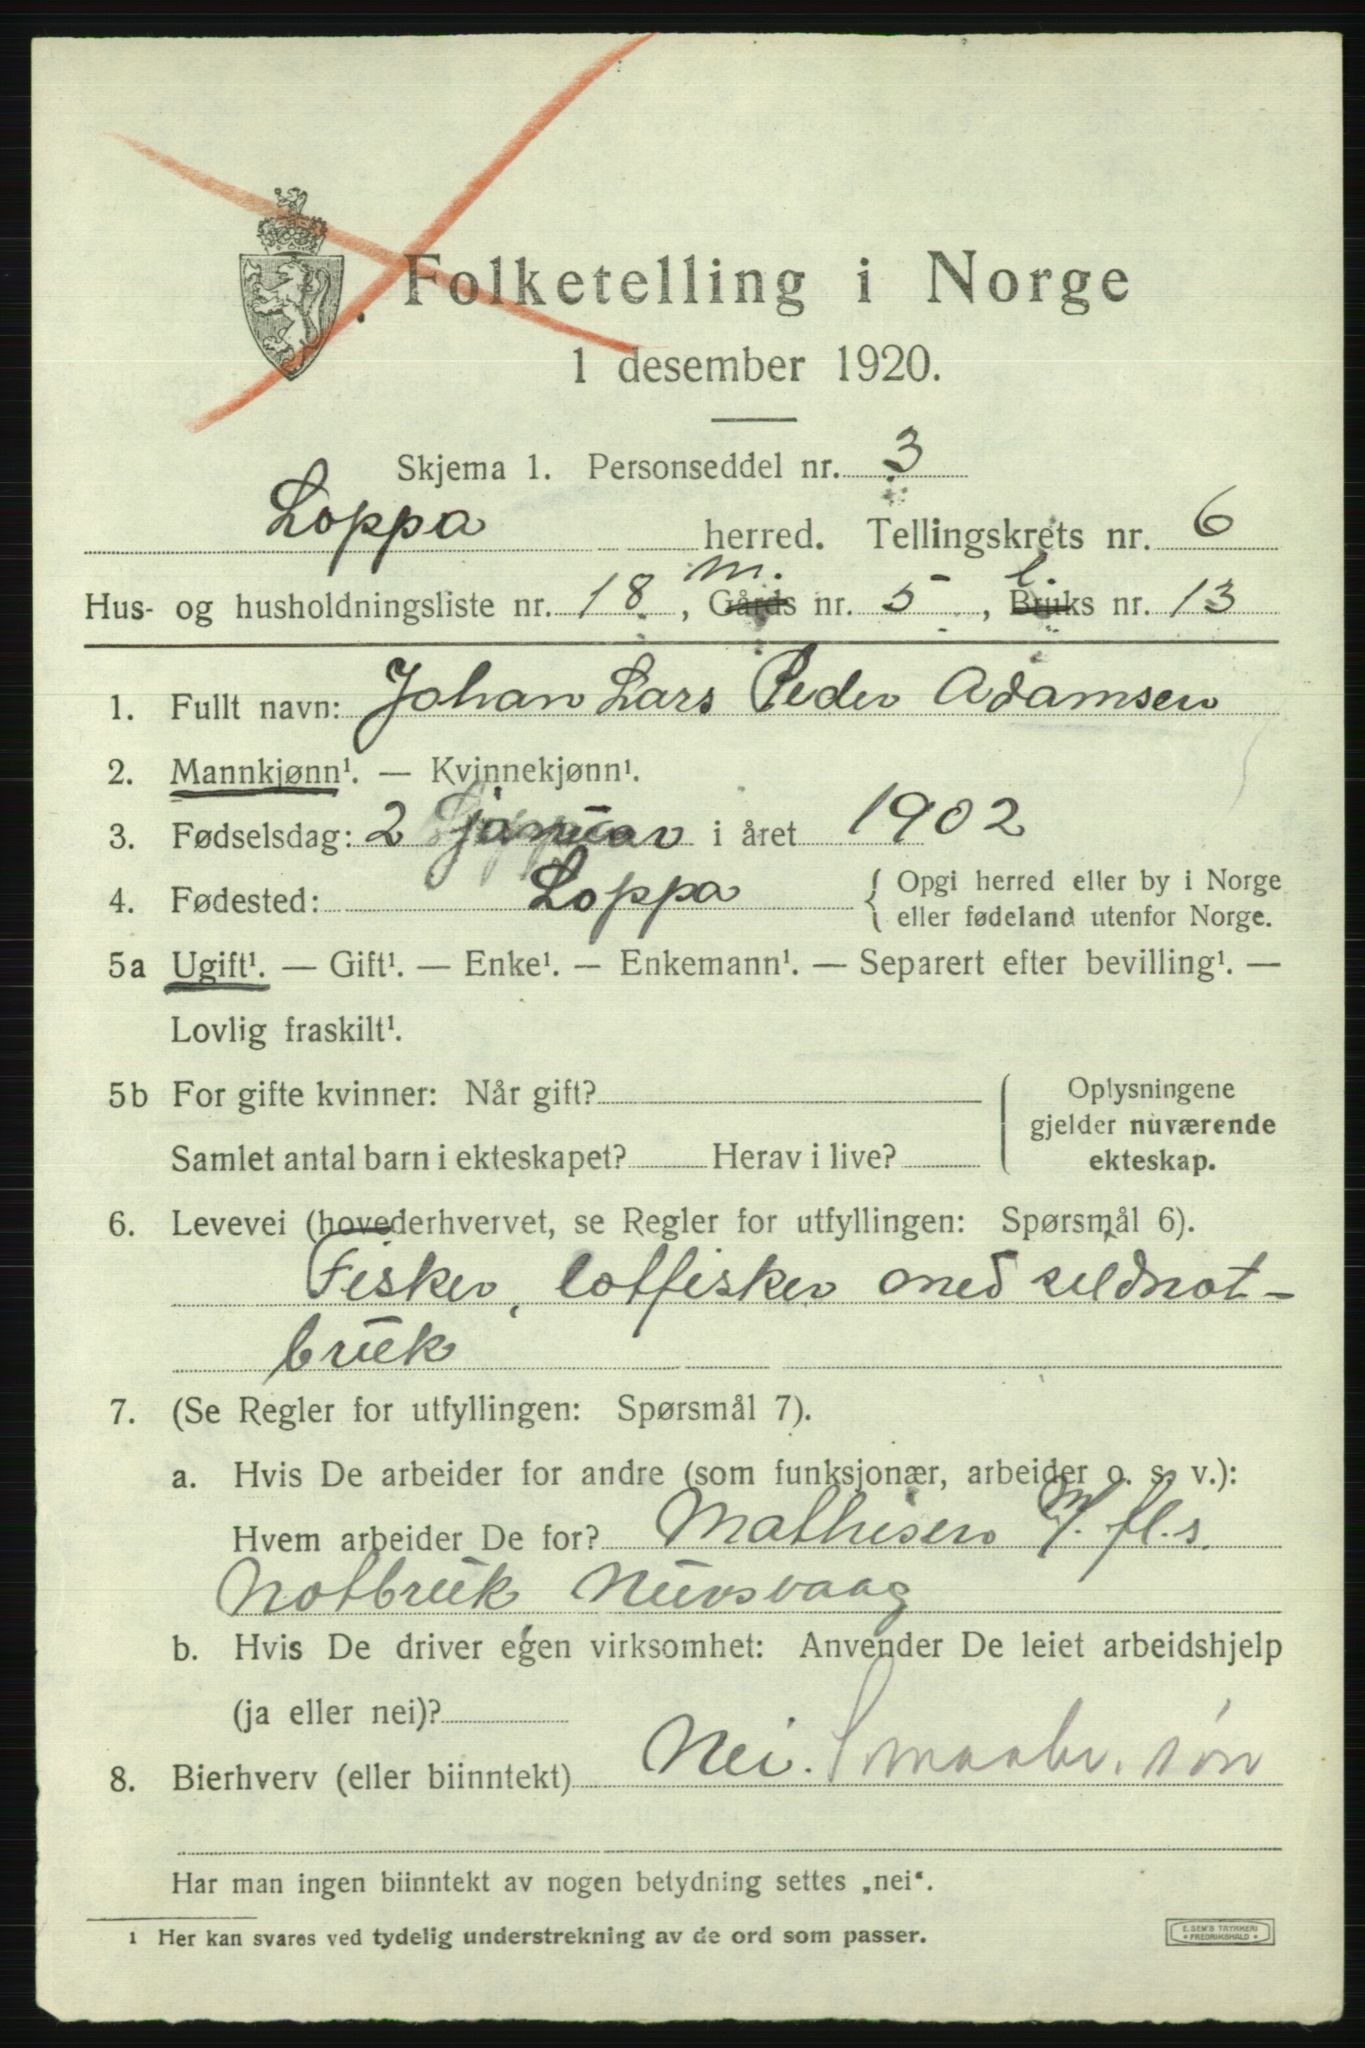 Folketelling i Norge
1 desember 1920.
Skjema 1. Personseddel nr. 3
Loppa herred. Tellingskrets nr. 6
m. l.
Hus- og husholdningsliste nr. 18, Gårds nr. 5, Bruks nr. 13
1. Fullt navn: Johan Lars Peder Adamsen
2. Mannkjønn¹. — Kvinnekjønn¹.
3. Fødselsdag: 2 januar i året 1902
4. Fødested: Loppa { Opgi herred eller by i Norge
eller fødeland utenfor Norge.
5a Ugift¹. — Gift¹. — Enke¹. — Enkemann¹. — Separert efter bevilling¹. —
Lovlig fraskilt¹.
5b For gifte kvinner: Når gift? { Oplysningene
gjelder nuværende
Samlet antal barn i ekteskapet? Herav i live? ekteskap.
6. Levevei (hovederhvervet, se Regler for utfyllingen: Spørsmål 6).
Fisker, lotfisker med sildnot-
bruk
7. (Se Regler for utfyllingen: Spørsmål 7).
a. Hvis De arbeider for andre (som funksjonær, arbeider o. s. v.):
Hvem arbeider De for? Mathisen m/. fl.s
Notbruk Nuvsvaag
b. Hvis De driver egen virksomhet: Anvender De leiet arbeidshjelp
(ja eller nei)?
8. Bierhverv (eller biinntekt) Nei. Smaabr. søn
Har man ingen biinntekt av nogen betydning settes „nei“.
1 Her kan svares ved tydelig understrekning av de ord som passer.
E. SEM'S TRYKKERI
FREDRIKSHALD